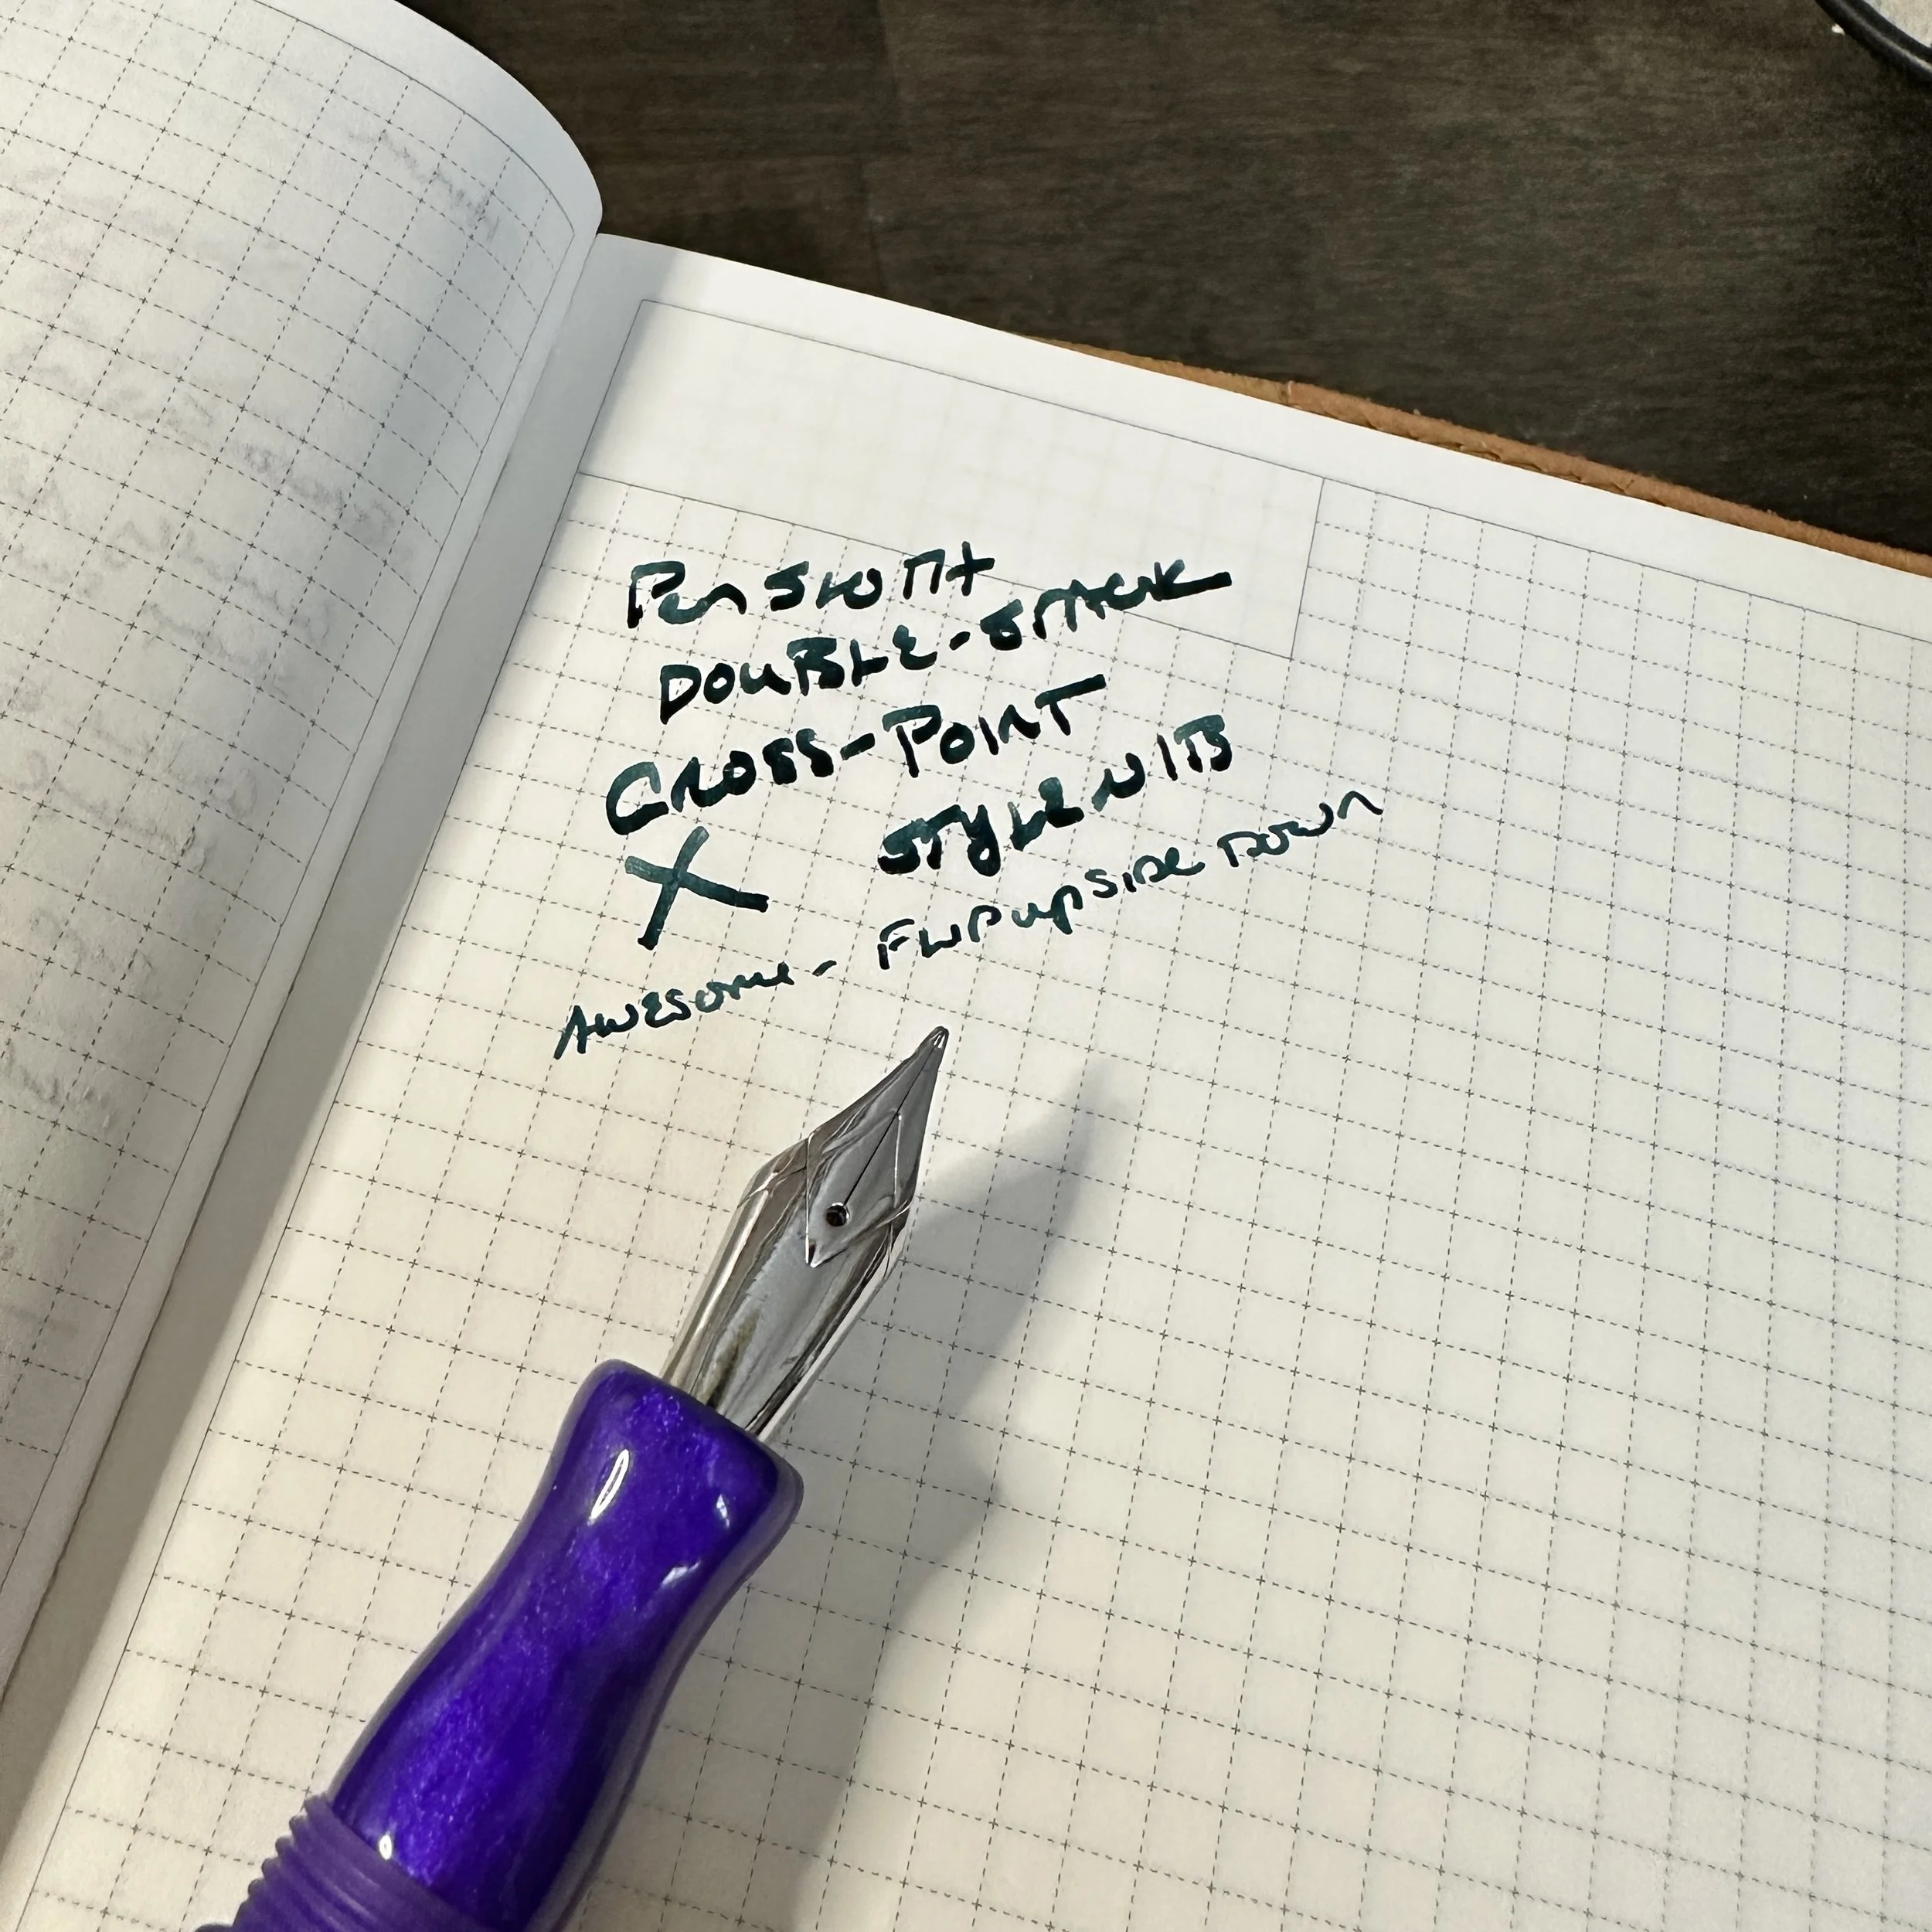 Pen
DOUBLE-STACK
CROSS-POINT
X STYLE NIB
AWESOME - FLIP UPSIDE DOWN